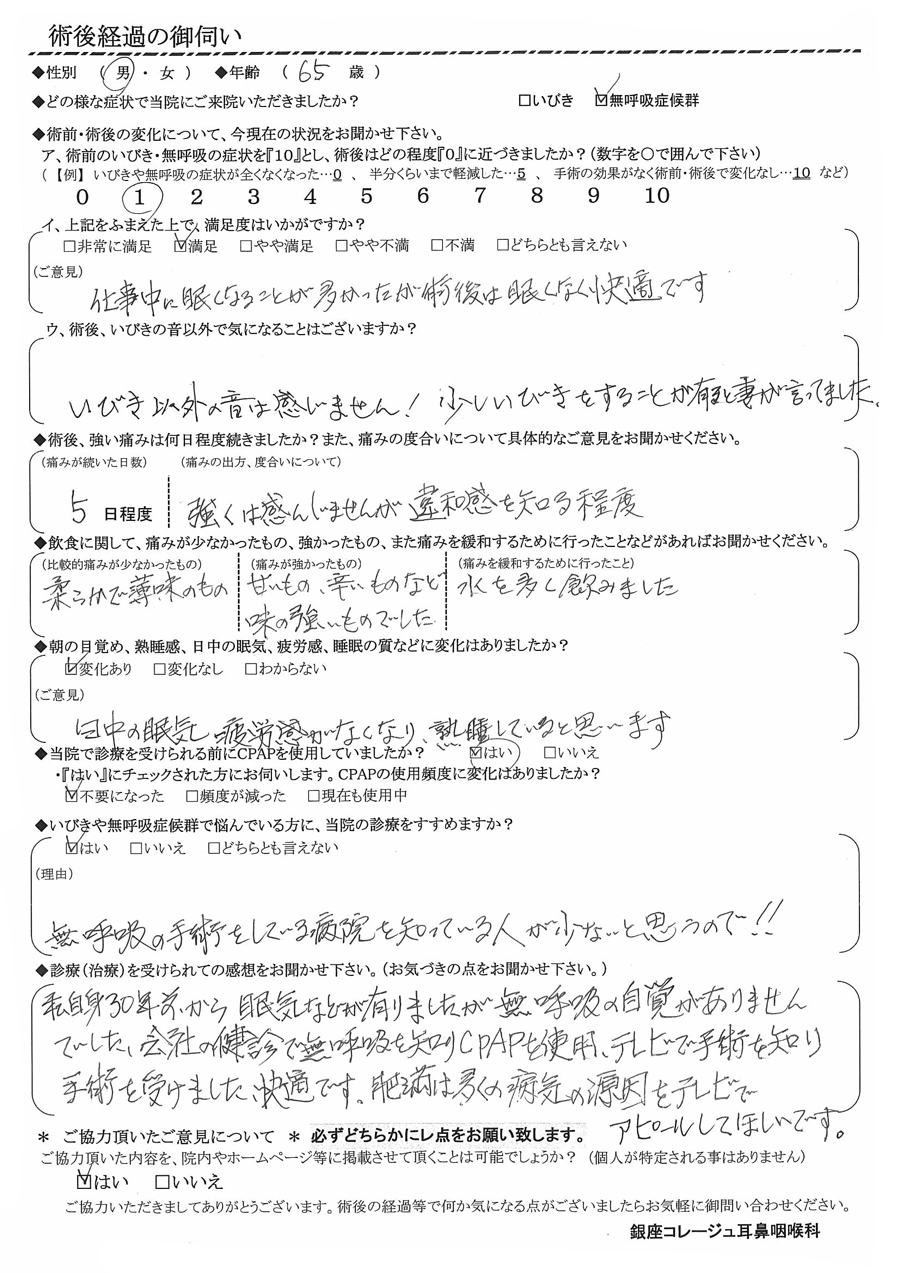 術後経過の御伺い
◆性別 （ 男 ・ 女 ） ◆年齢 （ 65 歳 ）
◆どの様な症状で当院にご来院いただきましたか？ □いびき ☑無呼吸症候群
◆術前・術後の変化について、今現在の状況をお聞かせ下さい。
ア、術前のいびき・無呼吸の症状を『10』とし、術後はどの程度『0』に近づきましたか？（数字を〇で囲んで下さい）
（【例】いびきや無呼吸の症状が全くなくなった…0 、 半分くらいまで軽減した…5 、 手術の効果がなく術前・術後で変化なし…10 など）
0 1 2 3 4 5 6 7 8 9 10
イ、上記をふまえた上で、満足度はいかがですか？
□非常に満足 ☑満足 □やや満足 □やや不満 □不満 □どちらとも言えない
（ご意見）
仕事中に眠くなることが多かったが術後は眠くなく快適です
ウ、術後、いびきの音以外で気になることはございますか？
いびき以外の音は感じません！ 少しいびきをすることが有ると妻が言ってました。
◆術後、強い痛みは何日程度続きましたか？また、痛みの度合いについて具体的なご意見をお聞かせください。
（痛みが続いた日数） （痛みの出方、度合いについて）
5 日程度 強くは感んじませんが違和感を知る程度
◆飲食に関して、痛みが少なかったもの、強かったもの、また痛みを緩和するために行ったことなどがあればお聞かせください。
（比較的痛みが少なかったもの） （痛みが強かったもの） （痛みを緩和するために行ったこと）
柔らかで薄味のもの 甘いもの、辛いものなど 水を多く飲みました
味の強いものでした
◆朝の目覚め、熟睡感、日中の眠気、疲労感、睡眠の質などに変化はありましたか？
☑変化あり □変化なし □わからない
（ご意見）
日中の眠気、疲労感がなくなり、熟睡していると思います
◆当院で診療を受けられる前にCPAPを使用していましたか？ ☑はい □いいえ
・『はい』にチェックされた方にお伺いします。CPAPの使用頻度に変化はありましたか？
☑不要になった □頻度が減った □現在も使用中
◆いびきや無呼吸症候群で悩んでいる方に、当院の診療をすすめますか？
☑はい □いいえ □どちらとも言えない
（理由）
無呼吸の手術をしている病院を知っている人が少ないと思うので!!
◆診療（治療）を受けられての感想をお聞かせ下さい。（お気づきの点をお聞かせ下さい。）
私自身30年前から眠気などが有りましたが無呼吸の自覚がありません
でした、会社の健診で無呼吸を知りCPAPを使用、テレビで手術を知り
手術を受けました、快適です。肥満は多くの病気の源因をテレビで
アピールしてほしいです。
＊ ご協力頂いたご意見について ＊ 必ずどちらかにレ点をお願い致します。
ご協力頂いた内容を、院内やホームページ等に掲載させて頂くことは可能でしょうか？ （個人が特定される事はありません）
☑はい □いいえ
ご協力いただきましてありがとうございます。術後の経過等で何か気になる点がございましたらお気軽に御問い合わせください。
銀座コレージュ耳鼻咽喉科